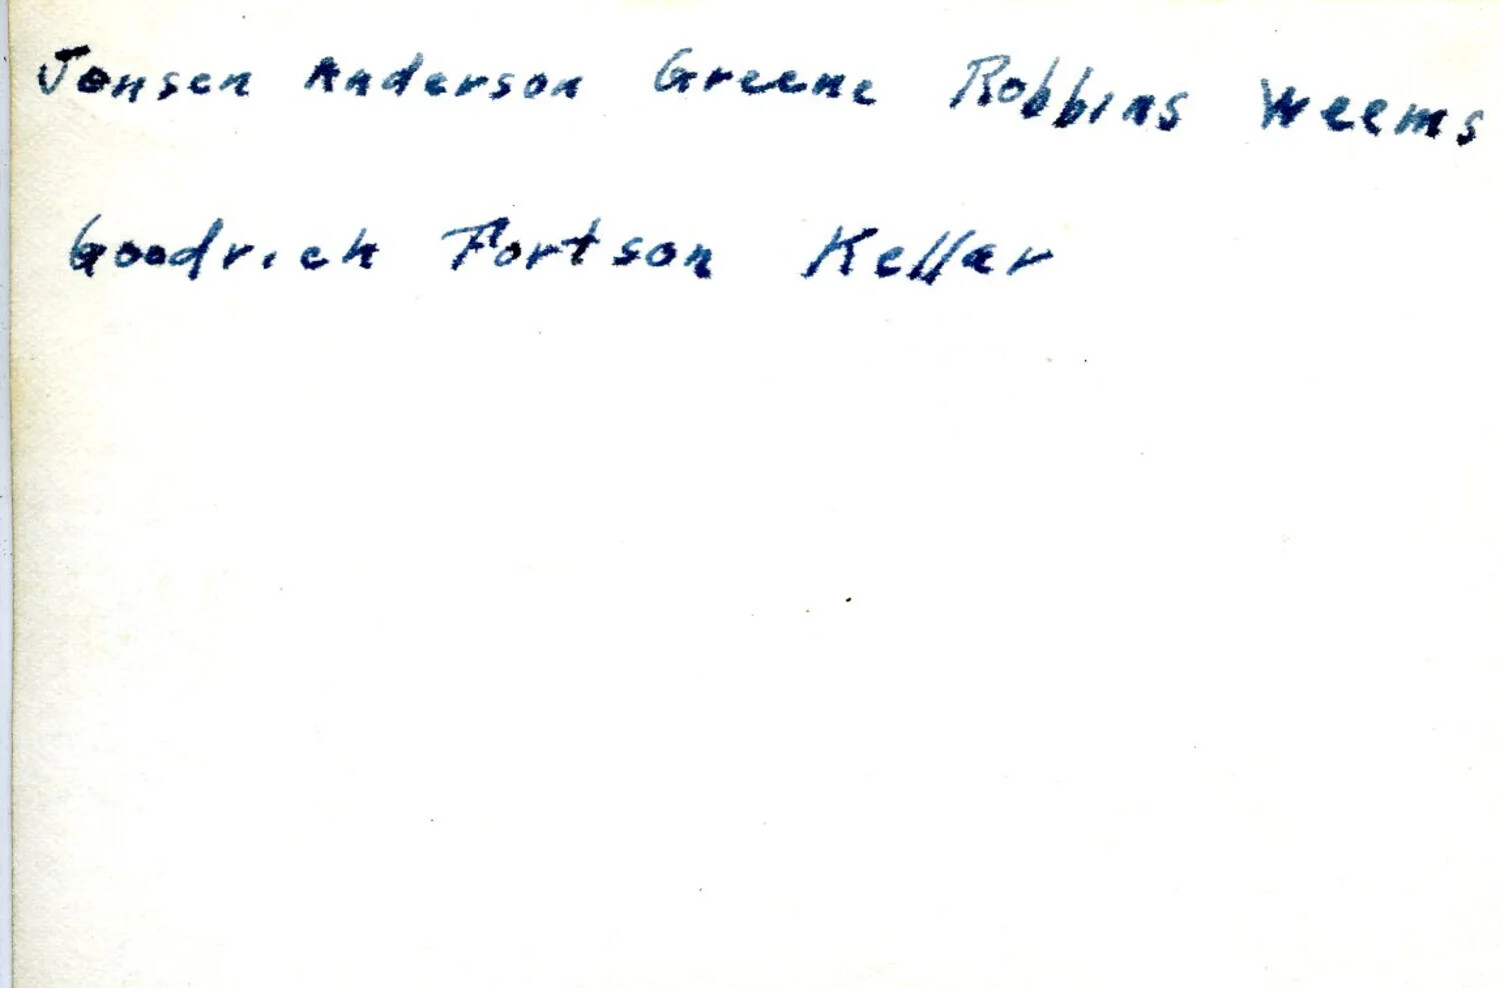 Jensen Anderson Greene Robbins Weems
Goodrich Fortson Kellar